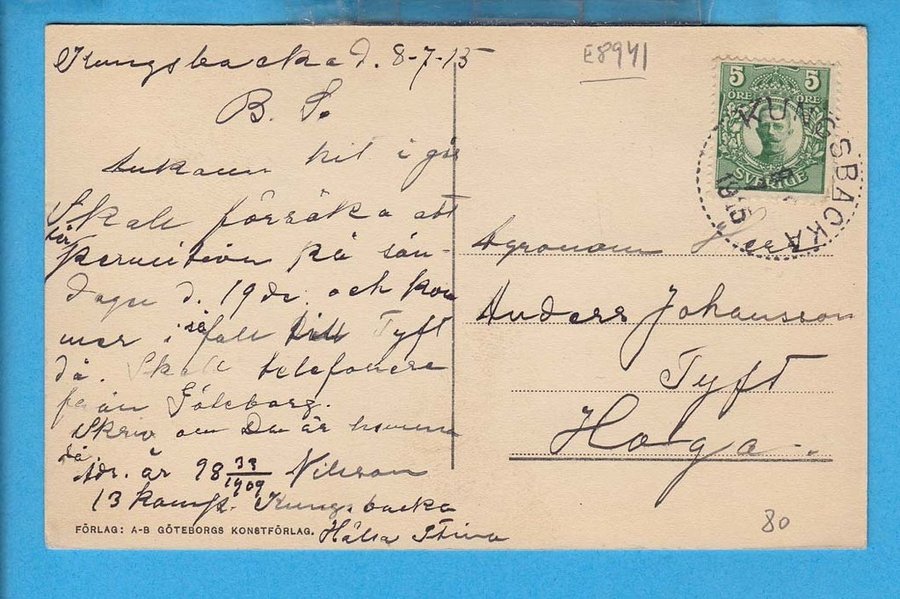 Kungsbacka d. 8-7-15
B. S.
Ankom hit i går
Skall försöka att
få permition på sön-
dagen d. 19de och kom
mer i så fall till Tyft
då. Skall telefonere
från Göteborg.
Skriv om Du är hemma
då.
Adr. är 98 33/1909 Nilsson
13 komp. Kungsbacka
Hälsa Stina
FÖRLAG: A-B GÖTEBORGS KONSTFÖRLAG.
E8941
5 5
ÖRE ÖRE
SVERIGE
KUNGSBACKA
1915
Agronom Herr
Anders Johansson
Tyft
Haga.
80